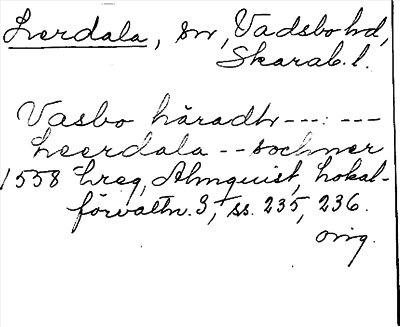 Lerdala, sn, Vadsbo hd,
Skarab. l.
Vasbo häradh ---:---
Leerdala -- sochner
1558 hreg, Almquist, Lokal-
förvaltn. 3, ss. 235, 236.
orig.